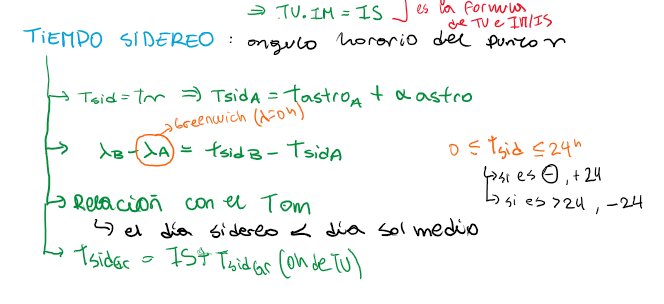 ⇒ TU.IM = IS
es la formula
de TU e IM/IS
TIEMPO SIDEREO : angulo horario del punto γ
→ Tsid = tγ ⇒ TsidA = tastroA + α astro
Greenwich (λ=0h)
→ λB - λA = tsidB - TsidA
0 ≤ tsid ≤ 24h
si es ⊖, +24
si es > 24, -24
→ Relación con el Tom
↳ el día sidereo < día sol medio
→ tsidGr = IS + TsidGr (0h de TU)